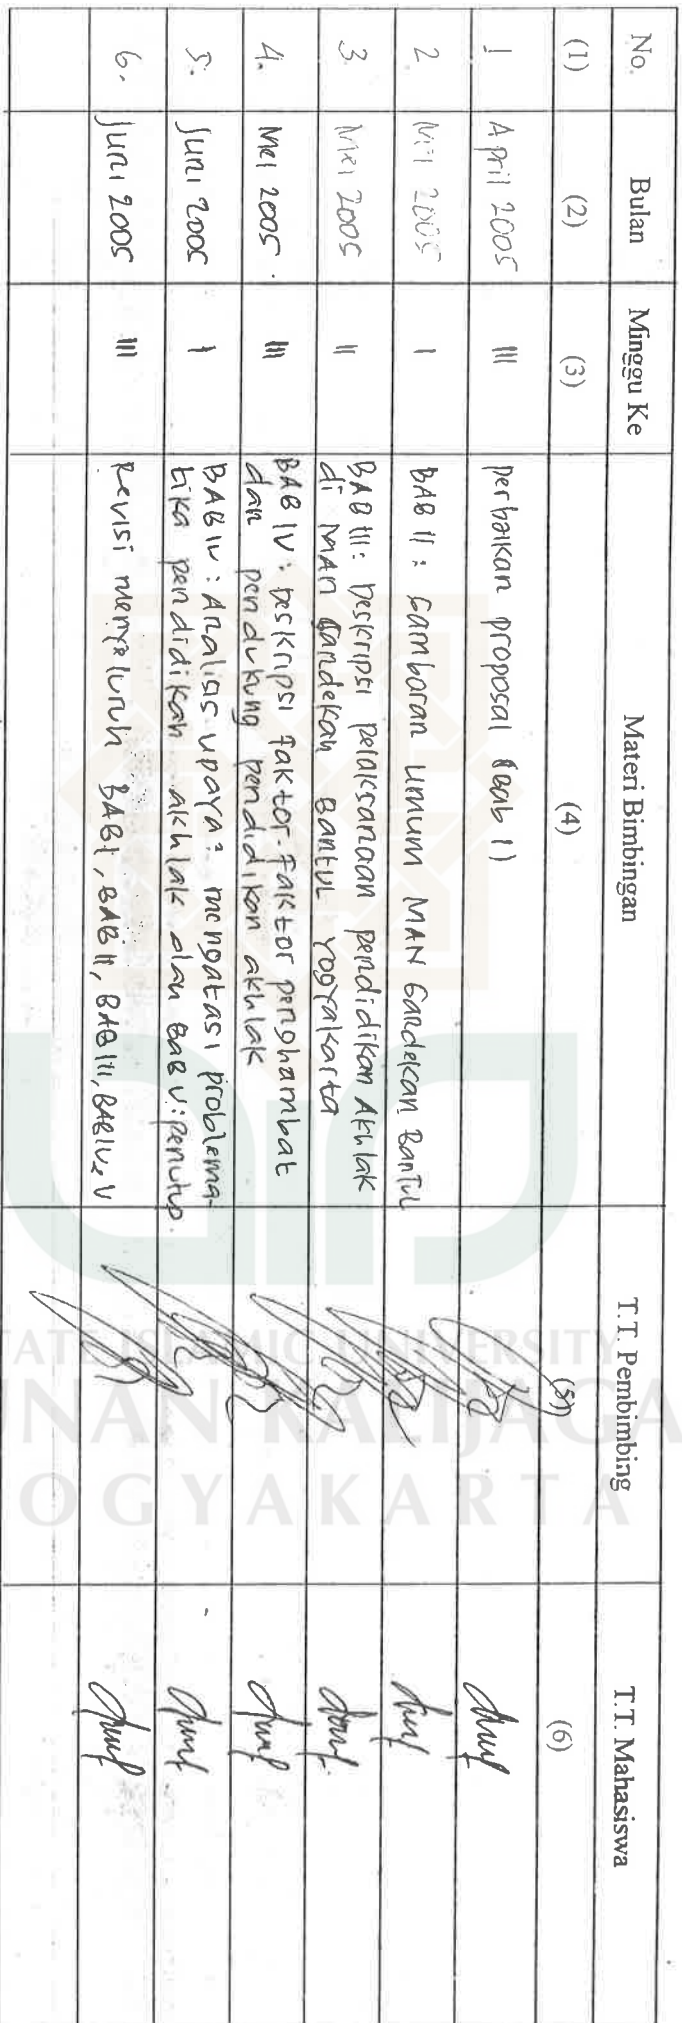 No. Bulan Minggu Ke Materi Bimbingan T.T. Pembimbing T.T. Mahasiswa
(1) (2) (3) (4) (5) (6)
1 April 2005 III perbaikan proposal (Bab 1)
2 Mei 2005 I BAB II : Gambaran Umum MAN Gandekan Bantul
3 Mei 2005 II BAB III : Deskripsi pelaksanaan pendidikan Akhlak
di MAN Gandekan Bantul Yogyakarta
4. Mei 2005. III BAB IV : Deskripsi faktor-faktor penghambat
dan pendukung pendidikan akhlak
5. Juni 2005 I BAB IV : Analisis upaya² mengatasi problema-
tika pendidikan akhlak dan BAB V : penutup.
6. Juni 2005 III Revisi menyeluruh BAB I, BAB II, BAB III, BAB IV, V
STATE ISLAMIC UNIVERSITY
SUNAN KALIJAGA
YOGYAKARTA